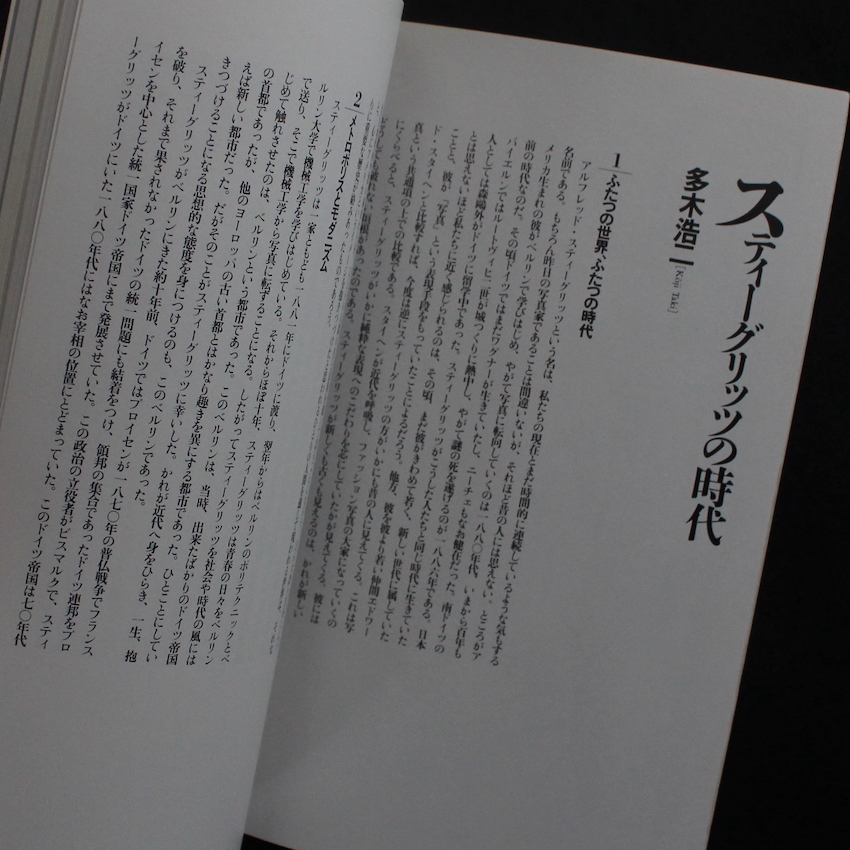 スティーグリッツの時代
多木浩二[Kōji Taki]
1 ふたつの世界、ふたつの時代
アルフレッド・スティーグリッツという名は、私たちの現在とまだ時間的に連続しているような気もする
名前である。もちろん昨日の写真家であることは間違いないが、それほど昔の人には思えない。ところがア
メリカ生まれの彼がベルリンで学びはじめ、やがて写真に転向していくのは一八八〇年代、いまから百年も
前の時代なのだ。その頃ドイツではまだワグナーが生きていたし、ニーチェもなお健在だった。南ドイツの
バイエルンではルートヴィヒ二世が城つくりに熱中し、やがて謎の死を遂げるのが一八八六年である。日本
人としては森鷗外がドイツに留学中であった。スティーグリッツがこうした人たちと同じ時代に生きていた
とは思えないほど私たちに近く感じられるのは、その頃、まだ彼がきわめて若く、新しい世代に属していた
ことと、彼が「写真」という表現手段をもっていたことによるだろう。他方、彼を彼より若い仲間エドワー
ド・スタイケンと比較すれば、今度は逆にスティーグリッツの方がいかにも昔の人に見えてくる。これは写
真という共通項の上での比較である。スタイケンが近代を呼吸し、ファッション写真の大家になっていくの
にくらべると、スティーグリッツがいかに純粋な表現へのこだわりを芯にしていたかが見えてくる。彼には
2 メトロポリスとモダニズム
スティーグリッツは一家ともども一八八一年にドイツに渡り、翌年からはベルリンのポリテクニックとベ
ルリン大学で機械工学を学びはじめている。それからほぼ十年、スティーグリッツは青春の日々をベルリン
で送り、そこで機械工学から写真に転ずることになる。したがってスティーグリッツを社会や時代の風には
じめて触れさせたのは、ベルリンという都市であった。このベルリンは、当時、出来たばかりのドイツ帝国
の首都であったが、他のヨーロッパの古い首都とはかなり趣きを異にする都市であった。ひとことにしてい
えば新しい都市だった。だがそのことがスティーグリッツに幸いした。かれが近代へ身をひらき、一生、抱
きつづけることになる思想的な態度を身につけるのも、このベルリンであった。
スティーグリッツがベルリンにきた約十年前、ドイツではプロイセンが一八七〇年の普仏戦争でフランス
を破り、それまで果されなかったドイツの統一問題にも結着をつけ、領邦の集合であったドイツ連邦をプロ
イセンを中心とした統一国家ドイツ帝国にまで発展させていた。この政治の立役者がビスマルクで、スティ
ーグリッツがドイツにいた一八八〇年代にはなお宰相の位置にとどまっていた。このドイツ帝国は七〇年代